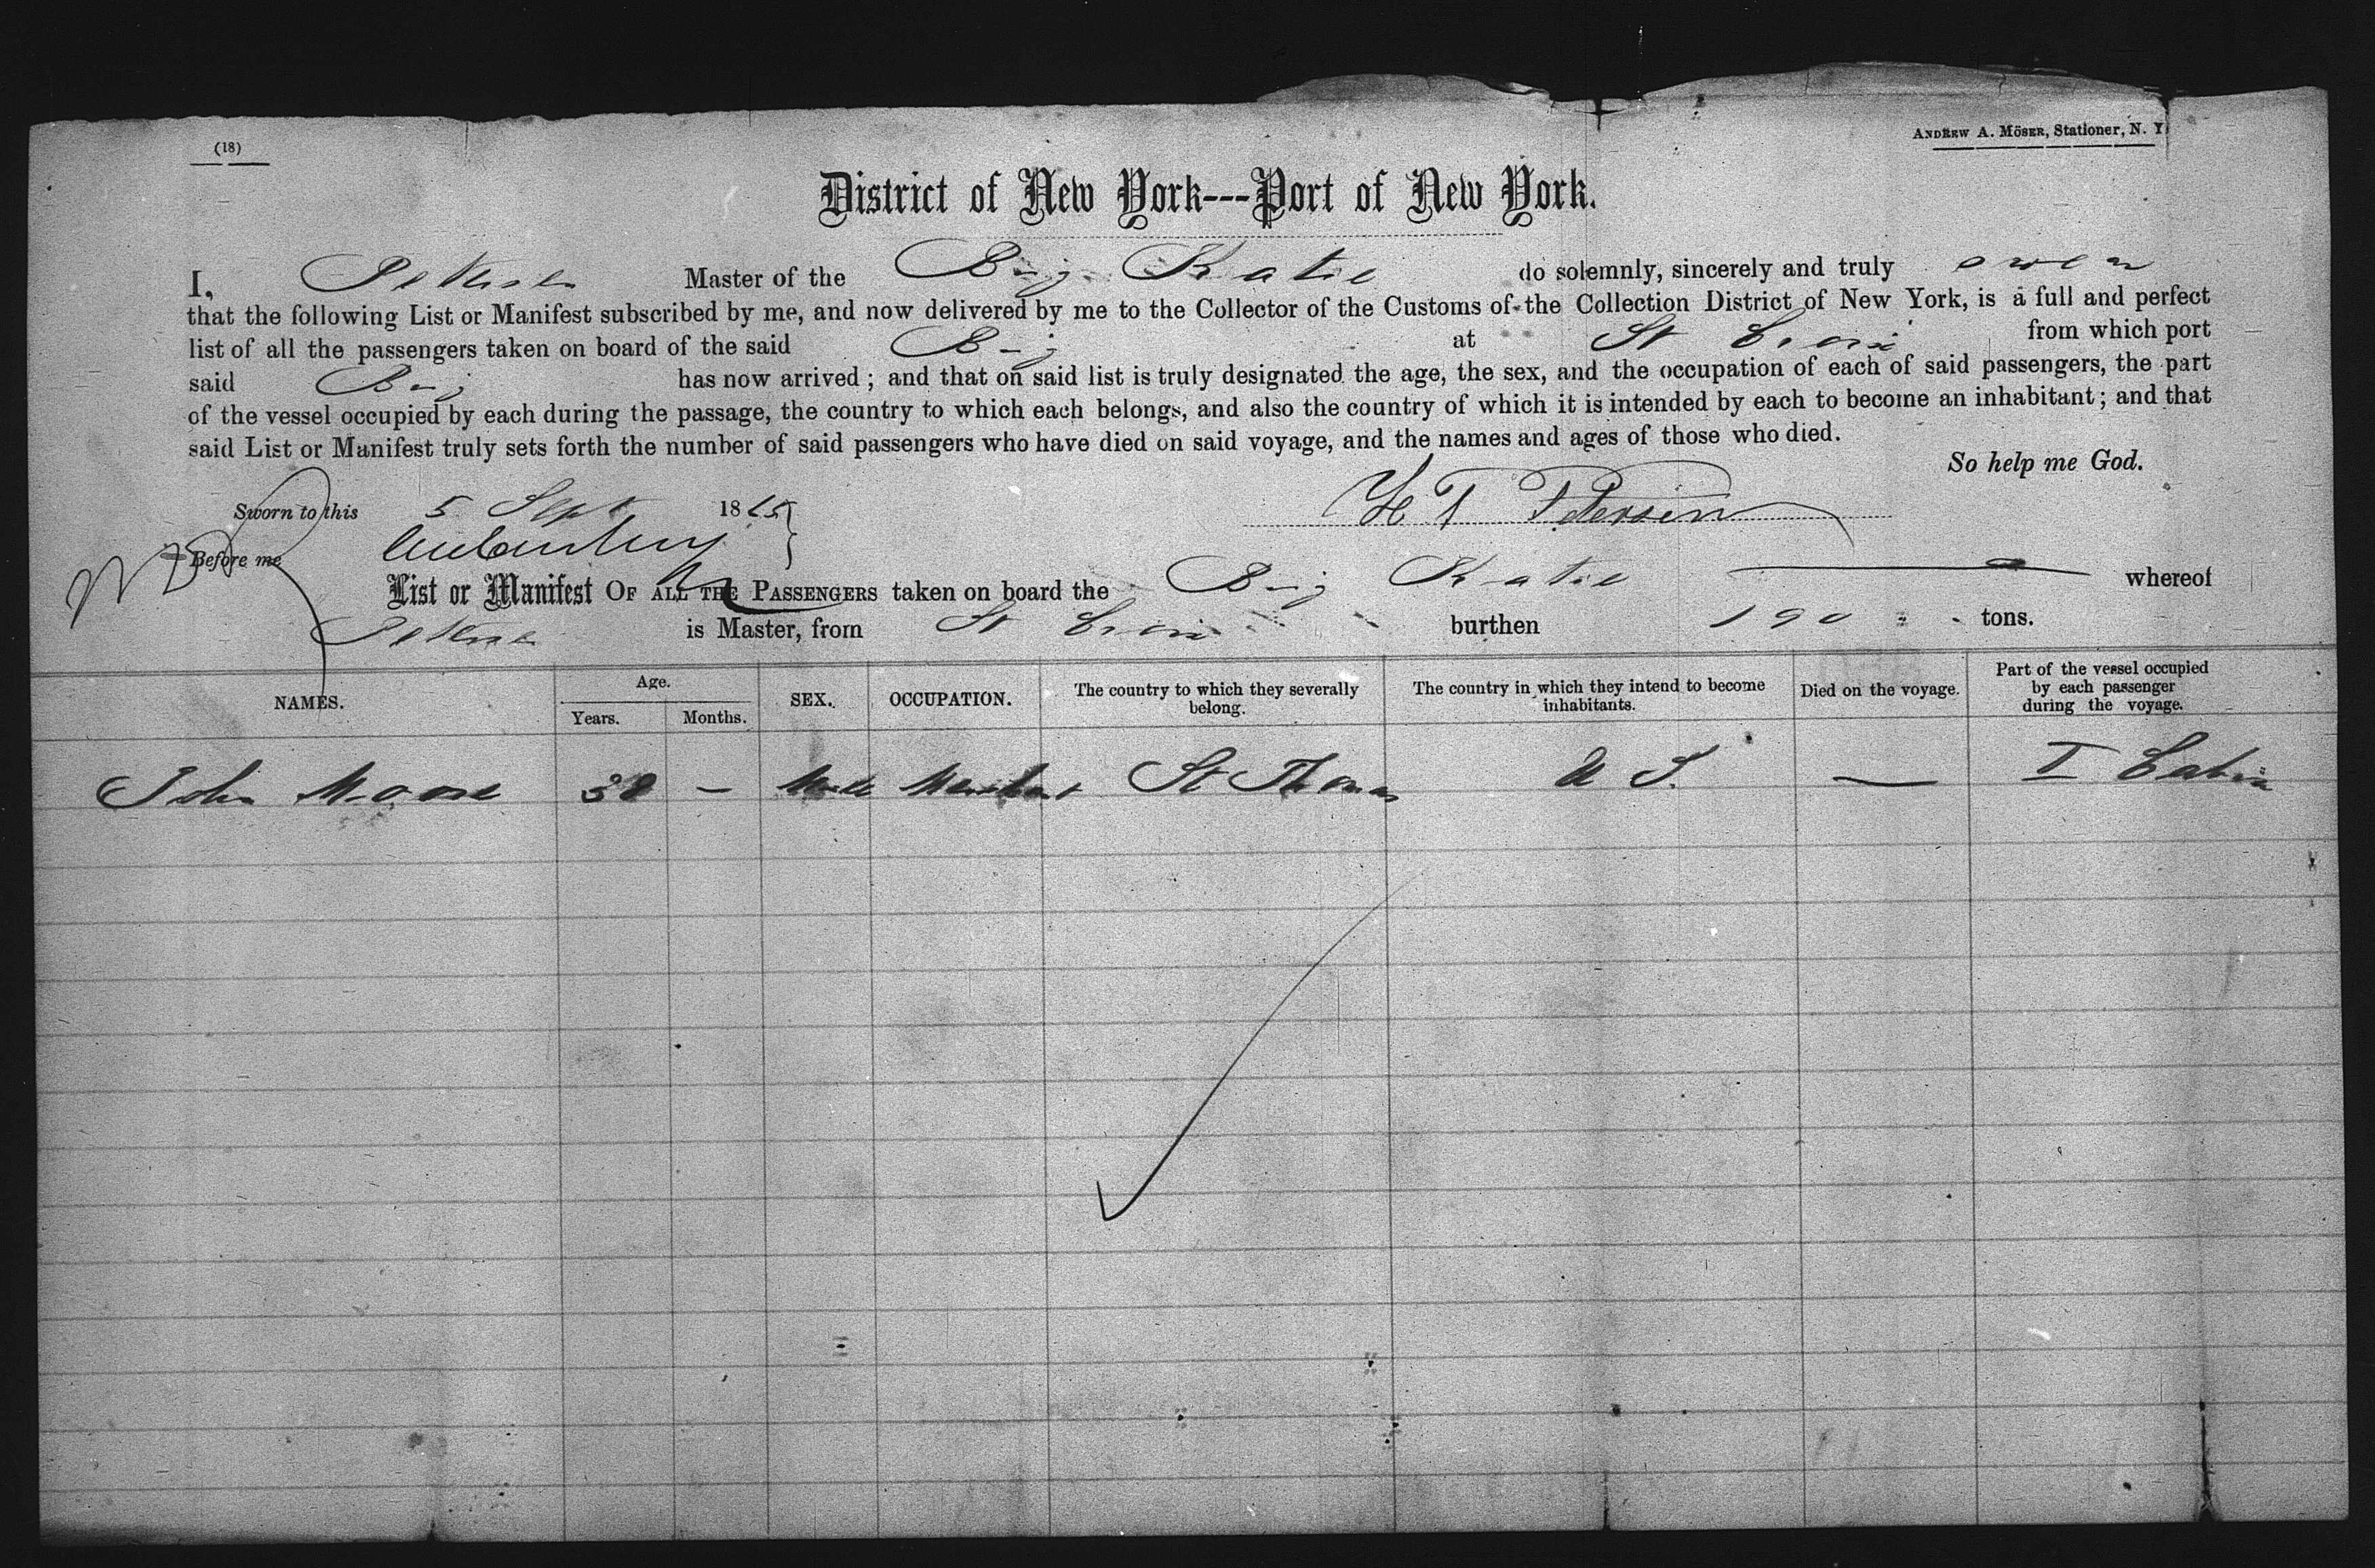 (18)
ANDREW A. MÖSER, Stationer, N. Y
District of New York---Port of New York.
I, Petersen Master of the Brig Katie do solemnly, sincerely and truly swear
that the following List or Manifest subscribed by me, and now delivered by me to the Collector of the Customs of the Collection District of New York, is a full and perfect
list of all the passengers taken on board of the said Brig at St Croix from which port
said Brig has now arrived; and that on said list is truly designated the age, the sex, and the occupation of each of said passengers, the part
of the vessel occupied by each during the passage, the country to which each belongs, and also the country of which it is intended by each to become an inhabitant; and that
said List or Manifest truly sets forth the number of said passengers who have died on said voyage, and the names and ages of those who died.
So help me God.
Sworn to this 5 Sept 1865
H T Petersen
Before me
List or Manifest OF ALL THE PASSENGERS taken on board the Brig Katie whereof
Petersen is Master, from St Croix burthen 190 tons.
NAMES.
Age.
Years.
Months.
SEX.
OCCUPATION.
The country to which they severally
belong.
The country in which they intend to become
inhabitants.
Died on the voyage.
Part of the vessel occupied
by each passenger
during the voyage.
John Moore 38 — Male Merchant St Thomas U S. — I Cabin